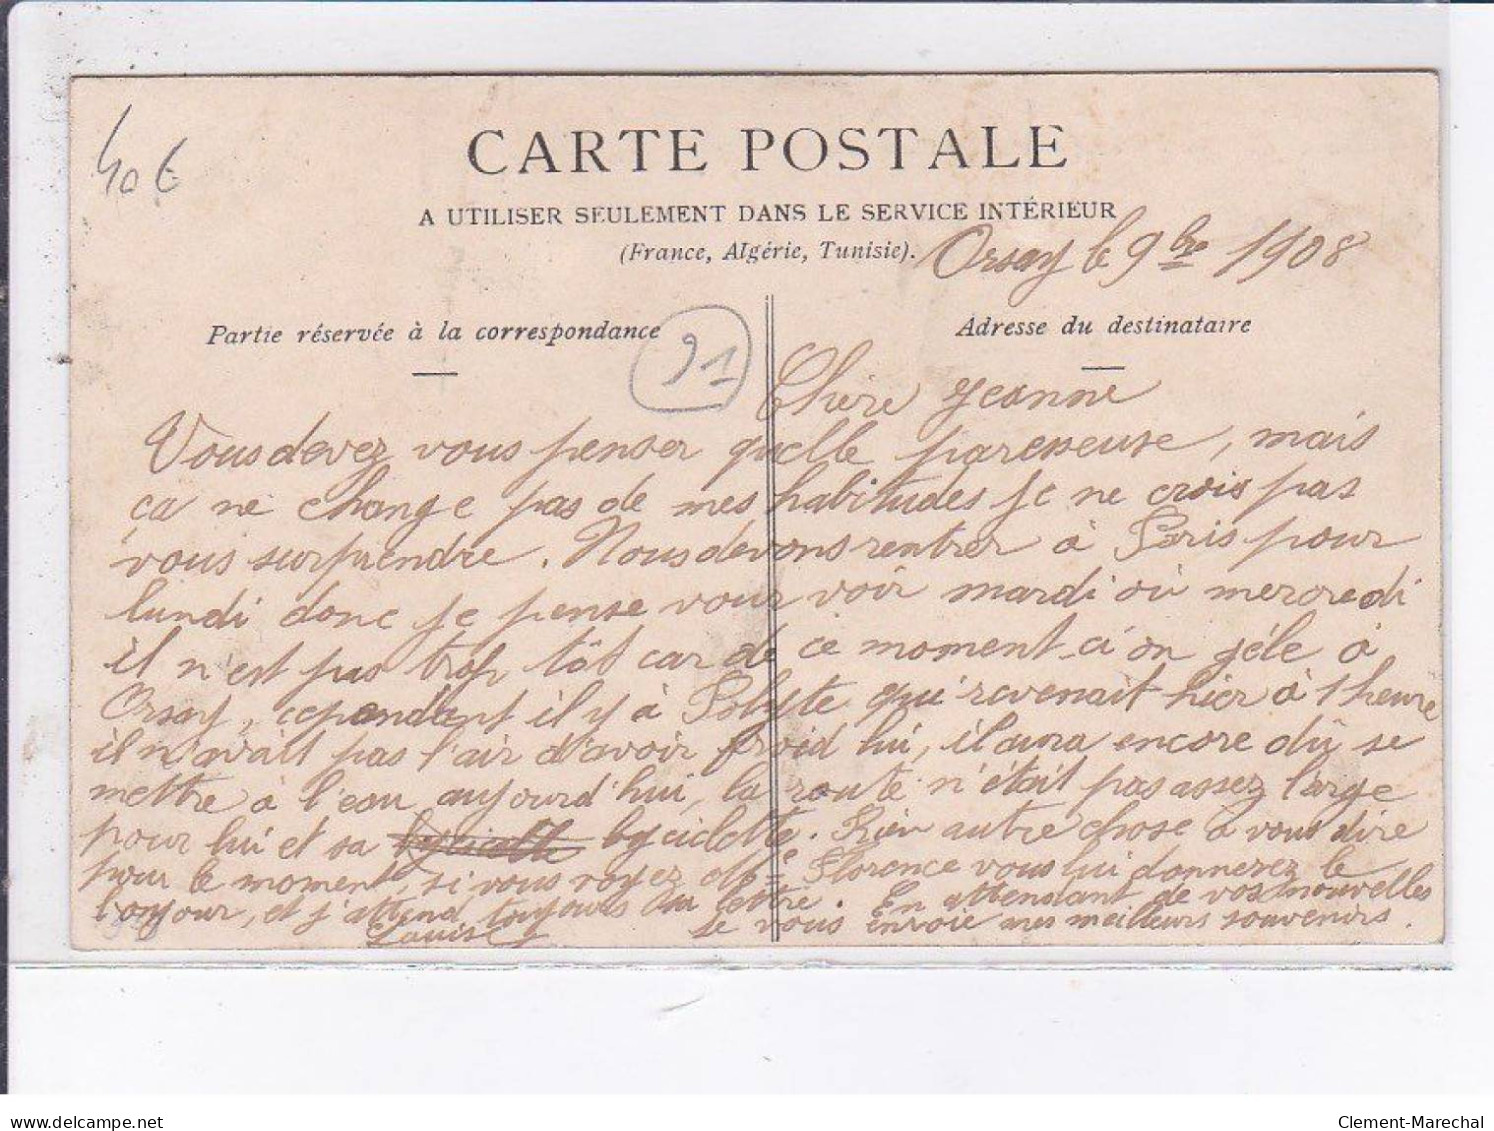 40€
CARTE POSTALE
A UTILISER SEULEMENT DANS LE SERVICE INTÉRIEUR
(France, Algérie, Tunisie).
Orsay le 9bre 1908
Partie réservée à la correspondance
91
Adresse du destinataire
Chère Jeanne
Vous devez vous penser quelle paresseuse, mais
ça ne change pas de mes habitudes je ne crois pas
vous surprendre. Nous devons rentrer à Paris pour
lundi donc je pense vous voir mardi ou mercredi
il n'est pas trop tôt car de ce moment ci on gèle à
Orsay, cependant il y à Polyte qui revenait hier à 1 heure
il n'avait pas l'air d'avoir froid lui, il aura encore dû se
mettre à l'eau aujourd'hui, la route n'était pas assez large
pour lui et sa byciclette. Rien autre chose à vous dire
pour le moment, si vous voyez Mme Florence vous lui donnerez le
bonjour, et j'attend toujours sa lettre. En attendant de vos nouvelles
je vous envoie mes meilleurs souvenirs.
Louise
delcampe.net
Clement-Marechal